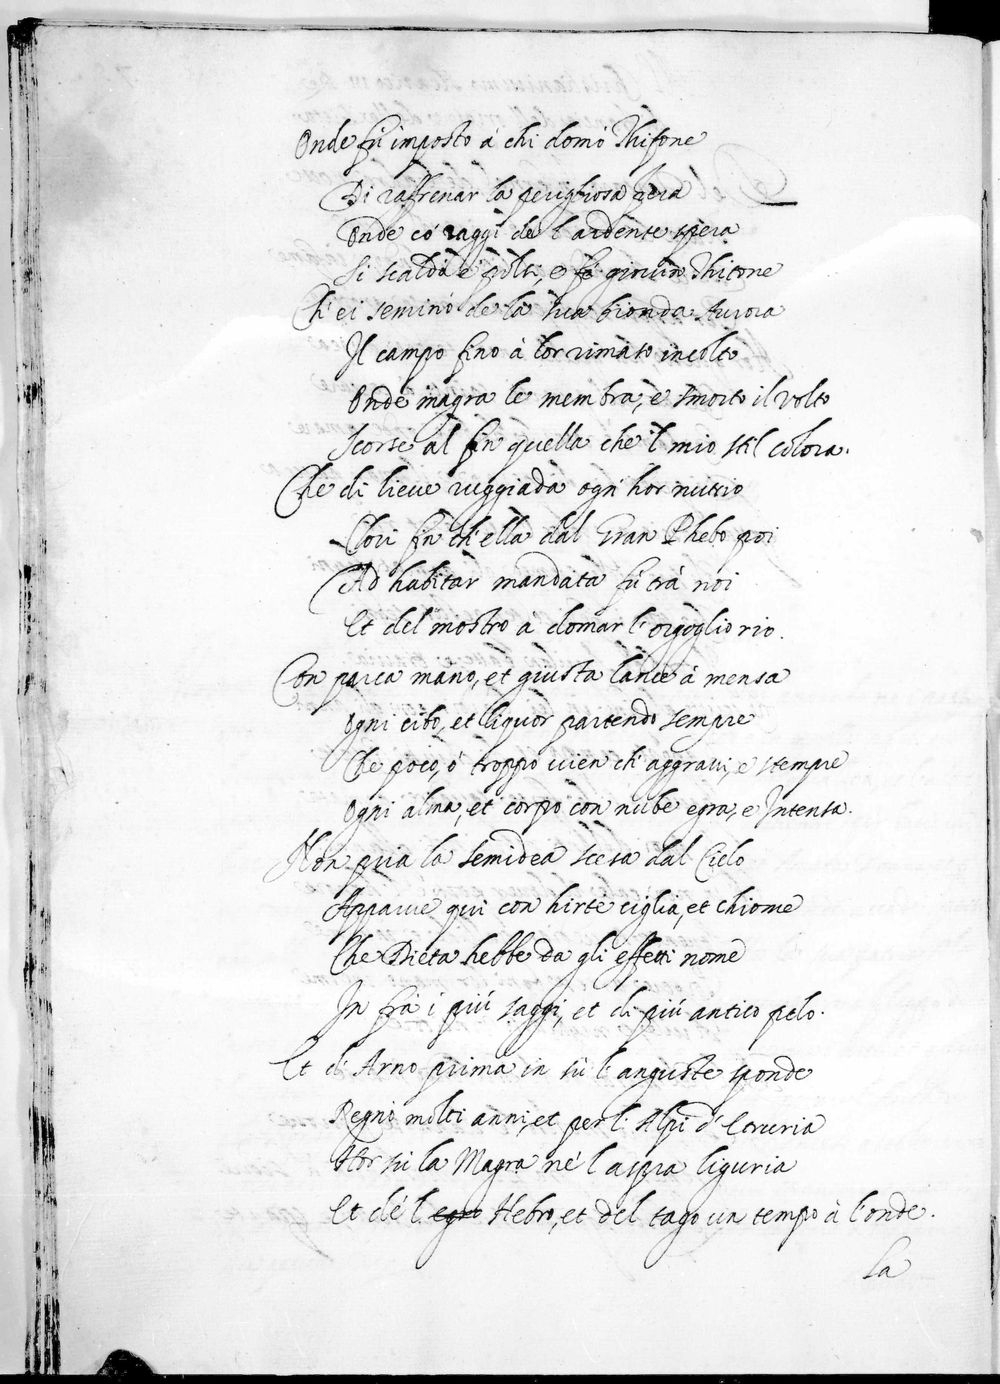 Onde fù imposto à chi domò Thifone
Di raffrenar la perigliosa fera
Onde có raggi de l'ardente spera
Si scaldò è poltì, e fe giouin Thitone
Ch'ei seminò de la sua bionda Aurora
Il campo fino à lor rimaso incolto
Onde magra le membra, e smorto il volto
Scorse al fin quella che 'l mio stil colora.
Che di lieue ruggiada ogn' hor nutrio
Clori fin ch'ella dal Gran Phebo poi
Ad habitar mandata fù trà noi
Et del mostro à domar l'orgoglio rio.
Con parca mano, et giusta lance à mensa
Ogni cibo, et liquor partendo sempre
Che poco, ó troppo uien ch'aggraui, e stempre
Ogni alma, et corpo con nube egra, e Intensa.
Non pria la semidea scesa dal Cielo
Apparue qui con hirte ciglia, et chiome
Che Dieta hebbe da gli effetti nome
In frà i più saggi, et di più antico pelo.
Et d'Arno prima in sù l'anguste sponde
Regnò molti anni, et per l'Alpi d'Etruria
Hor sù la Magra nè l'aspra liguria
Et dè l'egro Hebro, et del tago un tempo à l'onde.
La